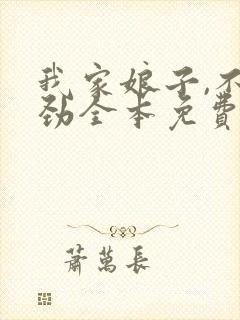 我家娘子,不
劲全本免費
蕭萬長